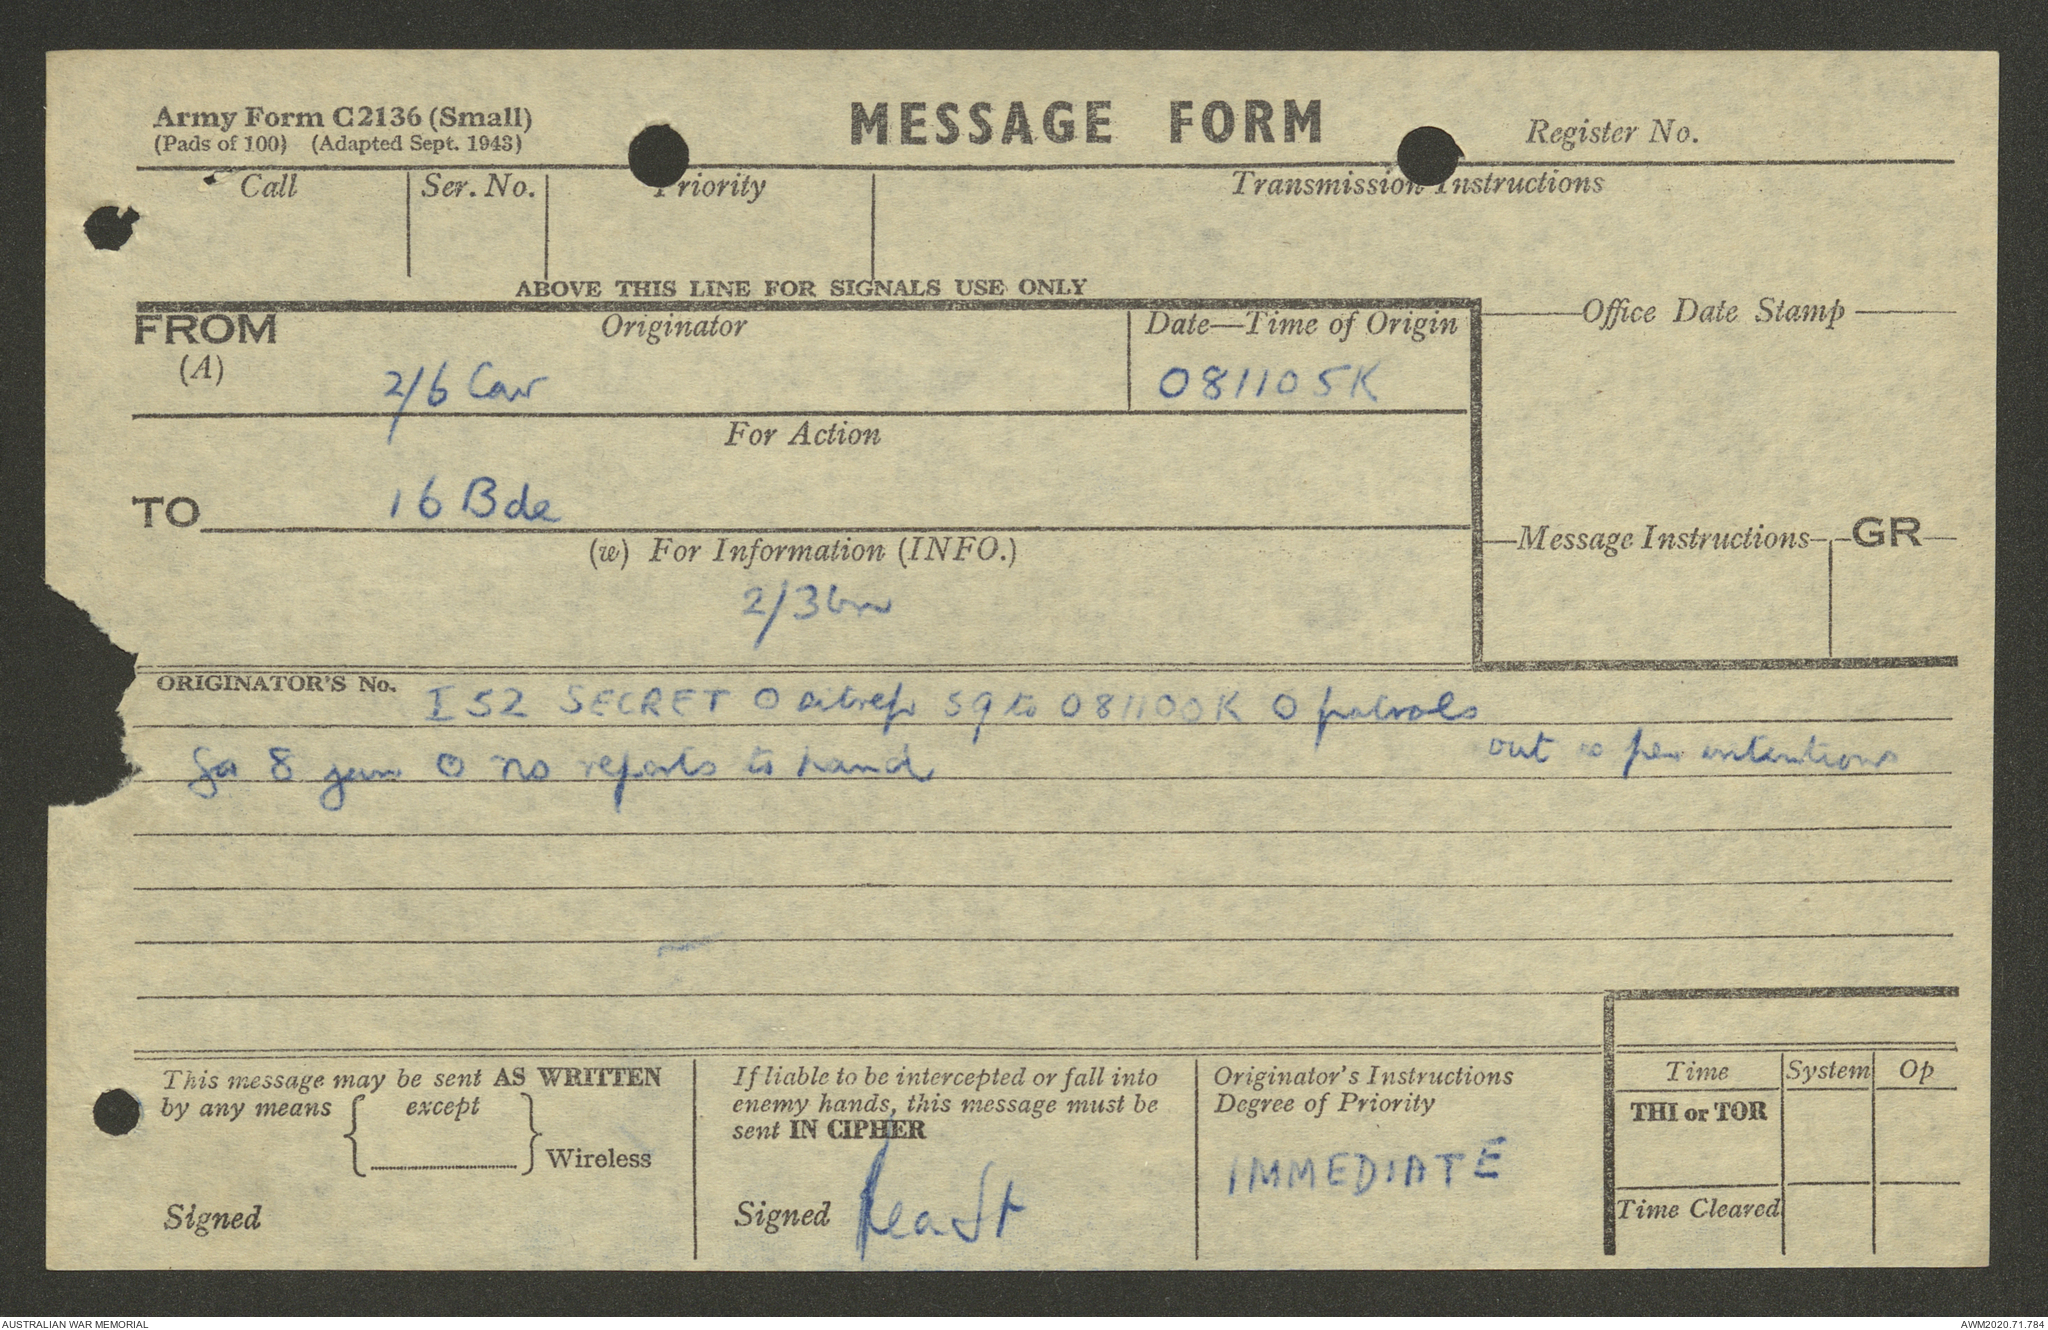 Army Form C2136 (Small)
(Pads of 100) (Adapted Sept. 1943)
MESSAGE FORM
Register No.
Call
Ser. No.
Priority
Transmission Instructions
ABOVE THIS LINE FOR SIGNALS USE ONLY
FROM
(A)
Originator
2/6 Cav
Date—Time of Origin
081105K
Office Date Stamp
For Action
TO
16 Bde
(w) For Information (INFO.)
2/3 bn
Message Instructions
GR
ORIGINATOR'S No.
I 52 SECRET O sitrep 59 to 081100K O patrols
out as per intentions
for 8 jun O no reports to hand
This message may be sent AS WRITTEN
by any means { except
} Wireless
Signed
If liable to be intercepted or fall into
enemy hands, this message must be
sent IN CIPHER
Signed
Originator's Instructions
Degree of Priority
IMMEDIATE
Time
System
Op
THI or TOR
Time Cleared
AUSTRALIAN WAR MEMORIAL
AWM2020.71.784